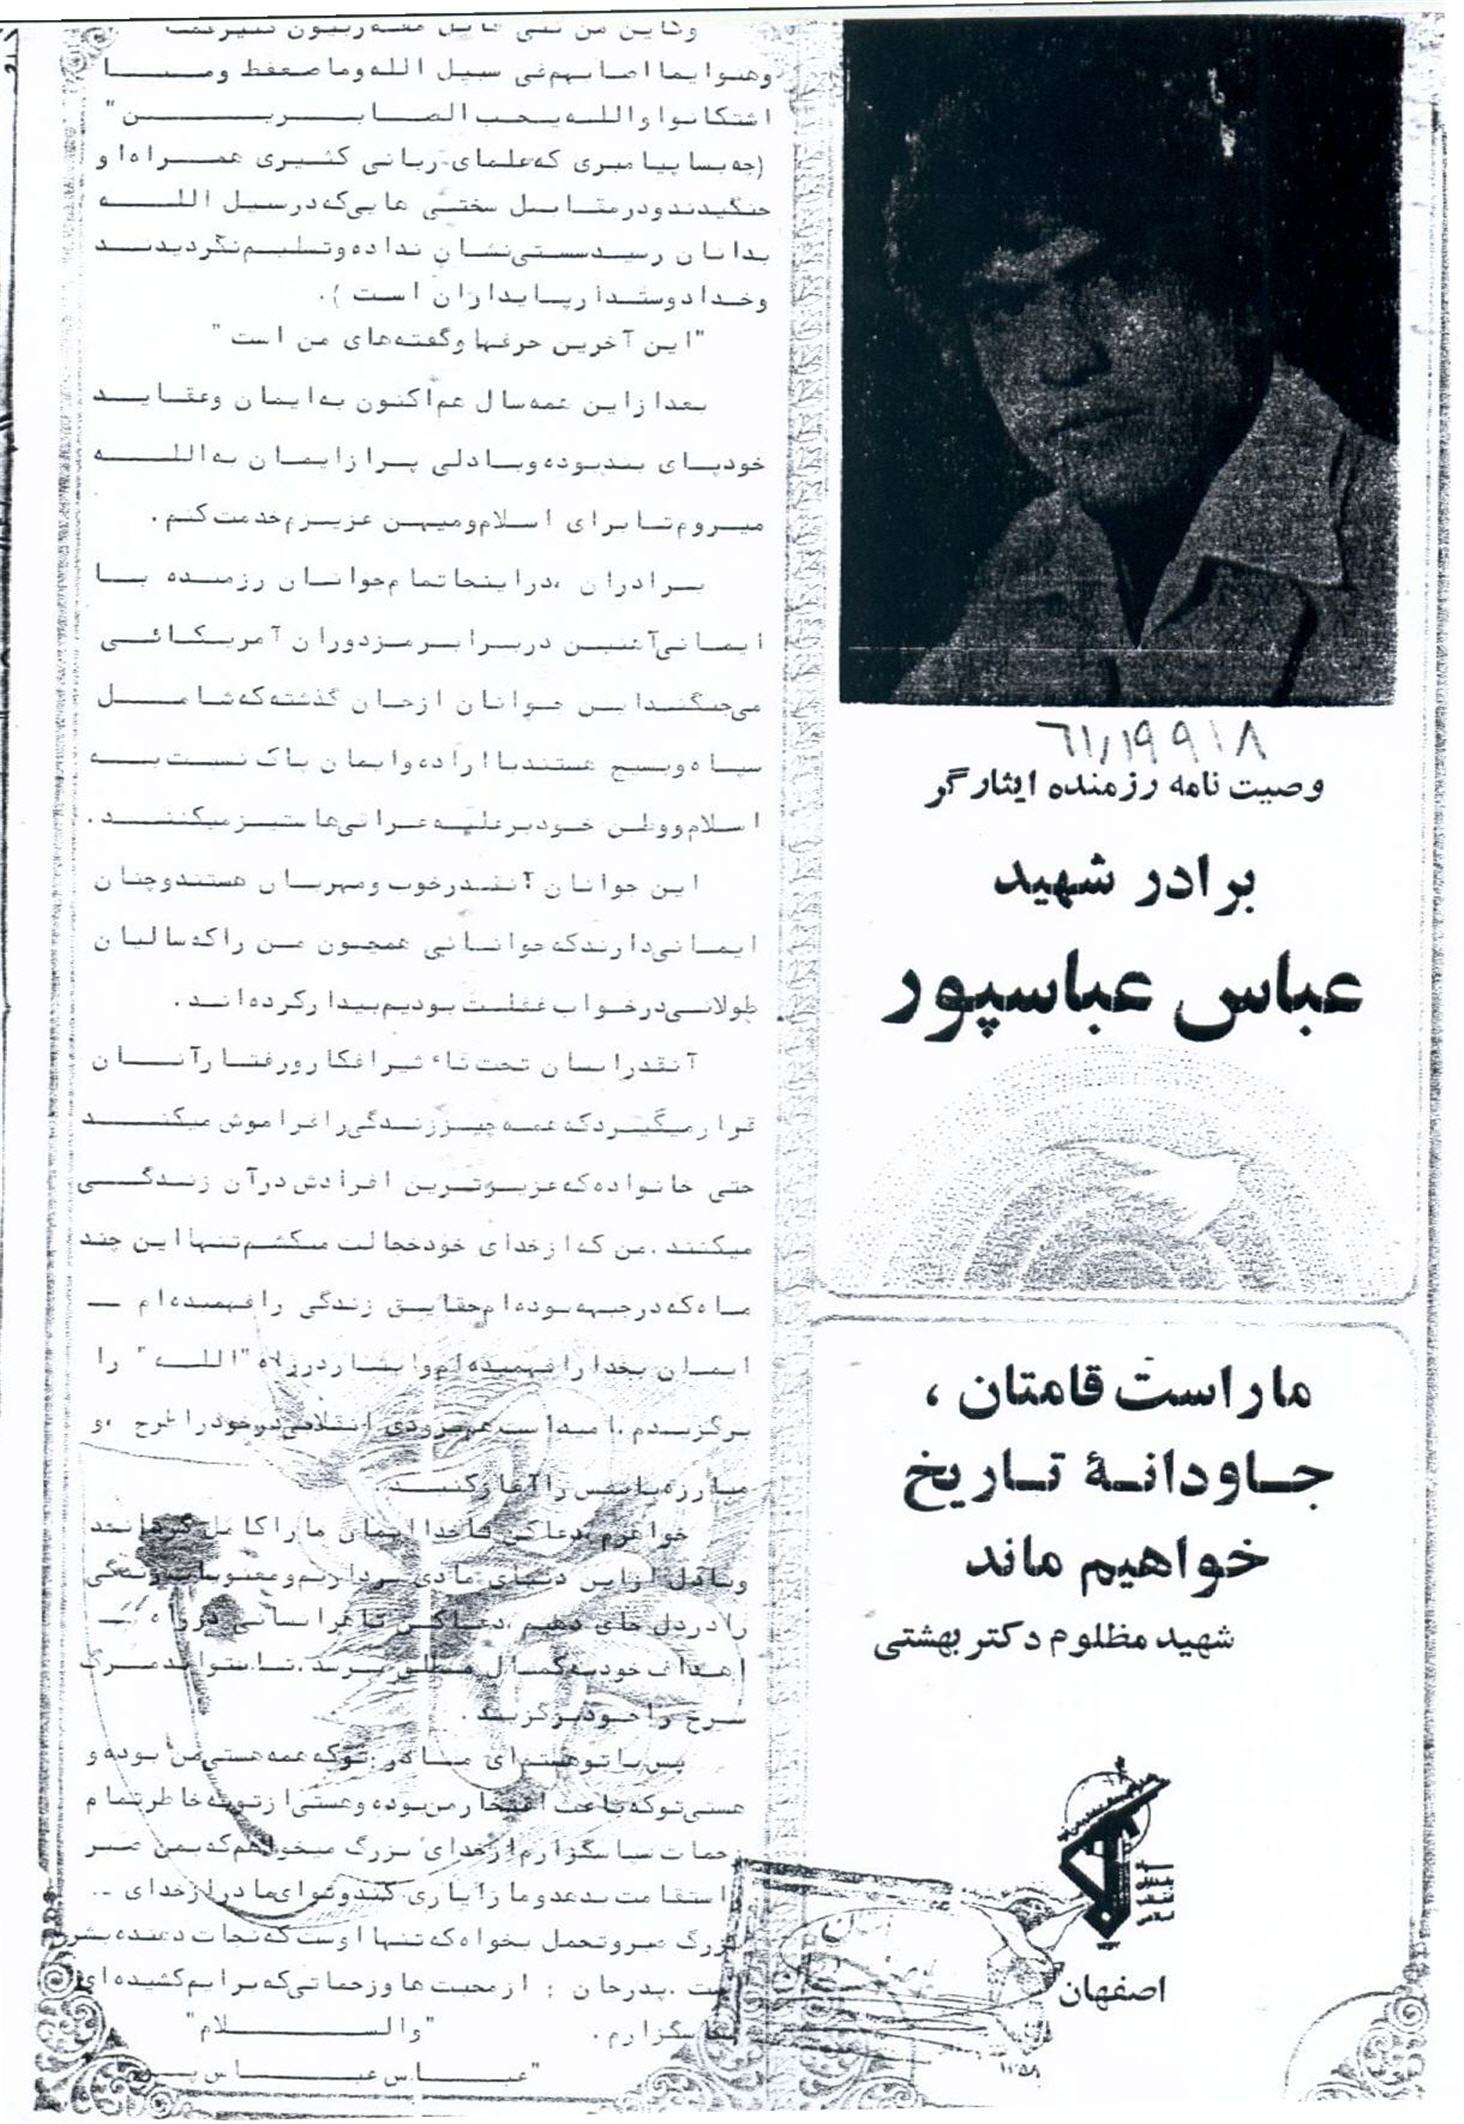 ۶۱/۱۹۹۱۸
وصیت نامه رزمنده ایثارگر
برادر شهید
عباس عباسپور
ما راست قامتان ،
جـاودانـهٔ تـاریخ
خواهیم ماند
شهید مظلوم دکتر بهشتی
اصفهان
۱۳۵۸
وهنوا بما اصابهم فی سبیل الله وما ضعفظ ومـــا
اشتکانوا والله یحب الصابـــریـــن"
(چه بسا پیامبری که علمای ربانی کثیری همـراه او
جنگیدند و در مقابـل سختی هایی که در سبیل اللــه
بدانان رسید سستی نشان نداده و تسلیم نگردیدنــد
وخـدا دوستـدار پـایـداران است ).
"این آخرین حرفها و گفته‌های من است "
بعد از این همه سال هم اکنون به ایمان و عقـایــد
خود پـای بنـد بوده و بـا دلی پـر از ایمـان به اللـــه
میـروم تـا بـرای اسـلام و میهـن عزیزم خدمت کنم .
بـرادران ، در اینجا تمام جوانـان رزمنـده بــا
ایمـانی آهنیـن در بـرابـر مـزدوران آمریـکـائـی
می‌جنگند ایـن جـوانان از جـان گذشته که شامــل
سپـاه و بسیج هستند بـا اراده و ایمـان پـاک نسبت بـه
اسـلام و وطـن خـود بر علیـه عـراقی‌ها ستیـز میکننــد .
این جوانان آنقـدر خوب و مهربـان هستند و چنان
ایمـانی دارند که جوانـانی همچـون مـن را که سالیان
طولانـی در خواب غفلت بودیم بیدار کرده‌انـد .
آنقدر انسان تحت تاء ثیر افکار و رفتـار آنــان
قـرار میگیـرد که همـه چیـز زنـدگی را فراموش میکنــد
حتی خانواده که عزیـزتریـن افرادش در آن زنـدگـــی
میکنند . من که از خدای خود خجالت میکشم تنهـا این چند
مـاه که در جبهه بـوده‌ام حقایـق زندگی را فهمیـده‌ام ــ
ایمـان بخدا را فهمیده‌ام و ایثـار در راه "اللــه" را
برگزیـدم . امیـد اسـت هم بزودی انقلابی در خود را طرح ، و
مبارزه با نفس را آغاز کنیـد .
خواهرم ، دعا کن تا خدا ایمان ما را کامل گرداند
و بتوانیم از این دنیـای مادی برداریم و معنویات زندگی
را در دل جای دهیم ، دعـا کـن تـا هر انسانی در راه ــ
اهـداف خود به کمـال مطلق برسـد ، تـا بتواند مـرگ
سـرخ را خـود برگزینـد .
پس با تو هستم ای مـادر . تو که همه هستی من بوده و
هستی تو که باعث افتخار من بوده و هستی از تو به خاطر تمام
زحمات سپاسگزارم از خدای بزرگ میخواهم که بمن صبـر
و استقامت بدهد و ما را یاری کند و تو ای مادر از خدای ــ
بزرگ صبر و تحمل بخواه که تنها اوست که نجات دهنده بشر
است . پدر جان ; از محبت ها و زحماتی که برایم کشیده‌ای
سپاسگزارم . "والســــلام"
"عبـــاس عبـــاس پــور"